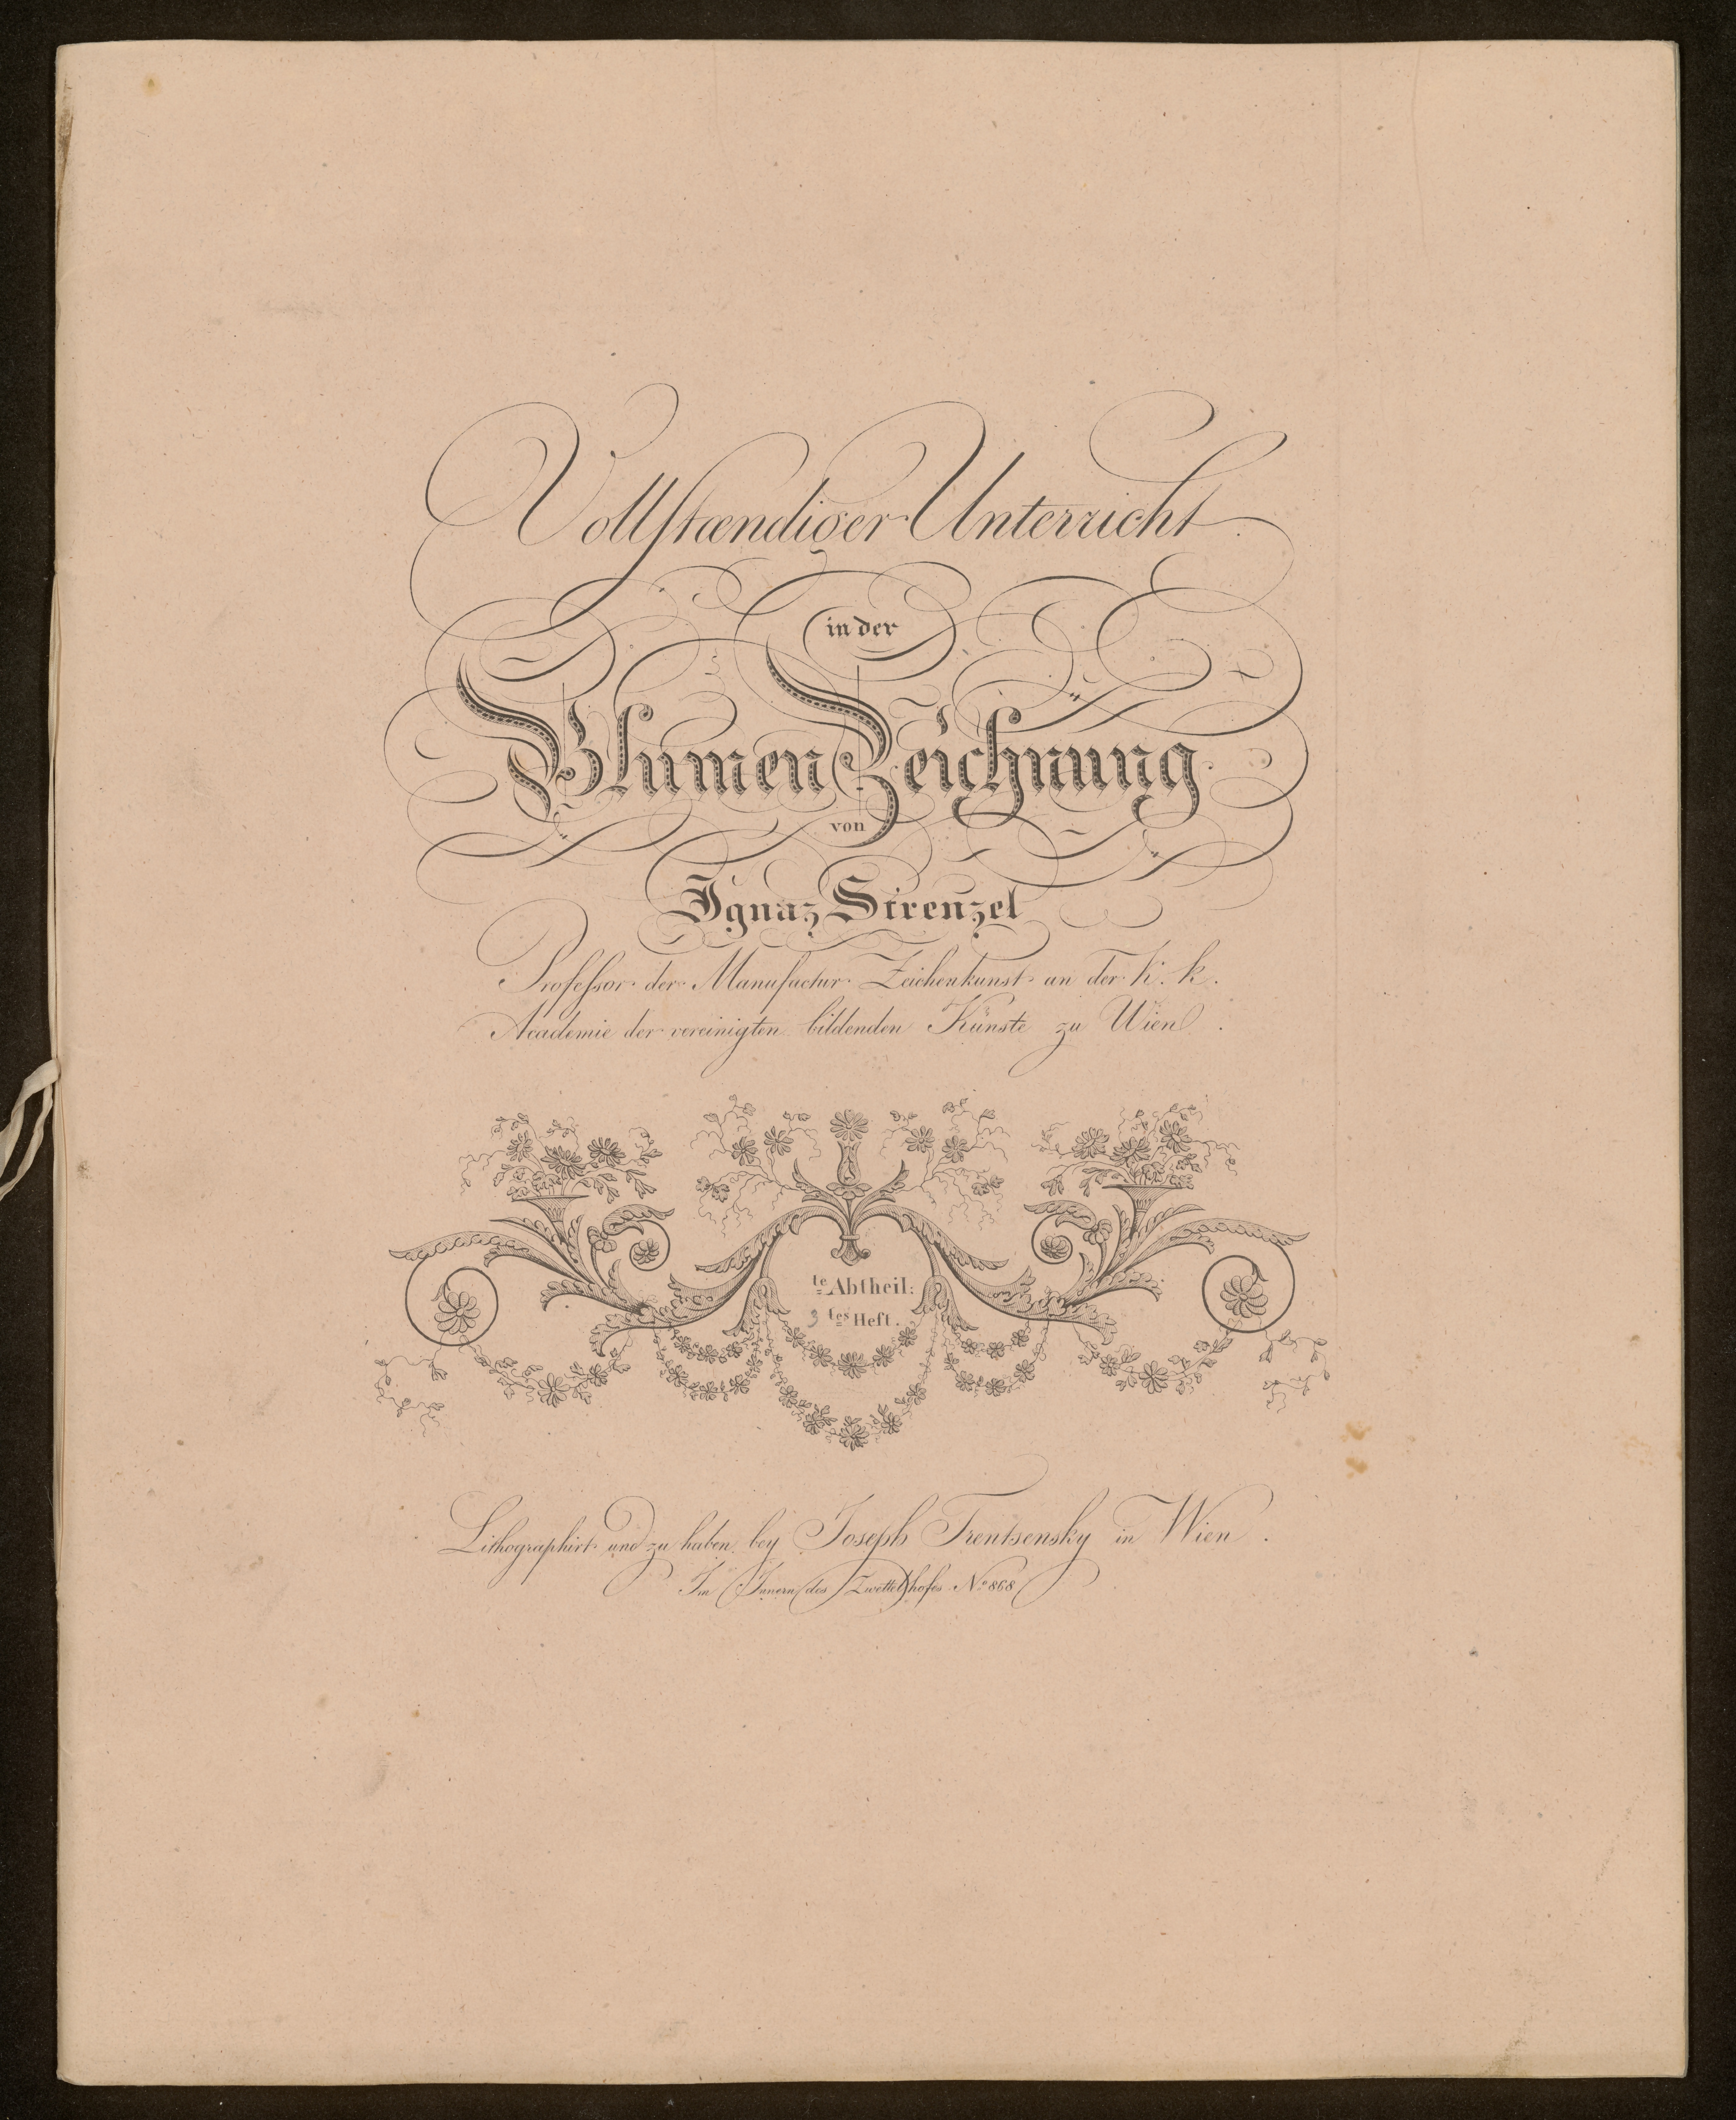 Vollstændiger Unterricht
in der
Blumen Zeichnung
von
Ignaz Strenzel
Professor der Manufactur Zeichenkunst an der k. k.
Academie der vereinigten bildenden Künste zu Wien.
te Abtheil:
3 tes Heft.
Lithographirt und zu haben bey Joseph Trentsensky in Wien.
Im Innern des Zwettelhofes No 868